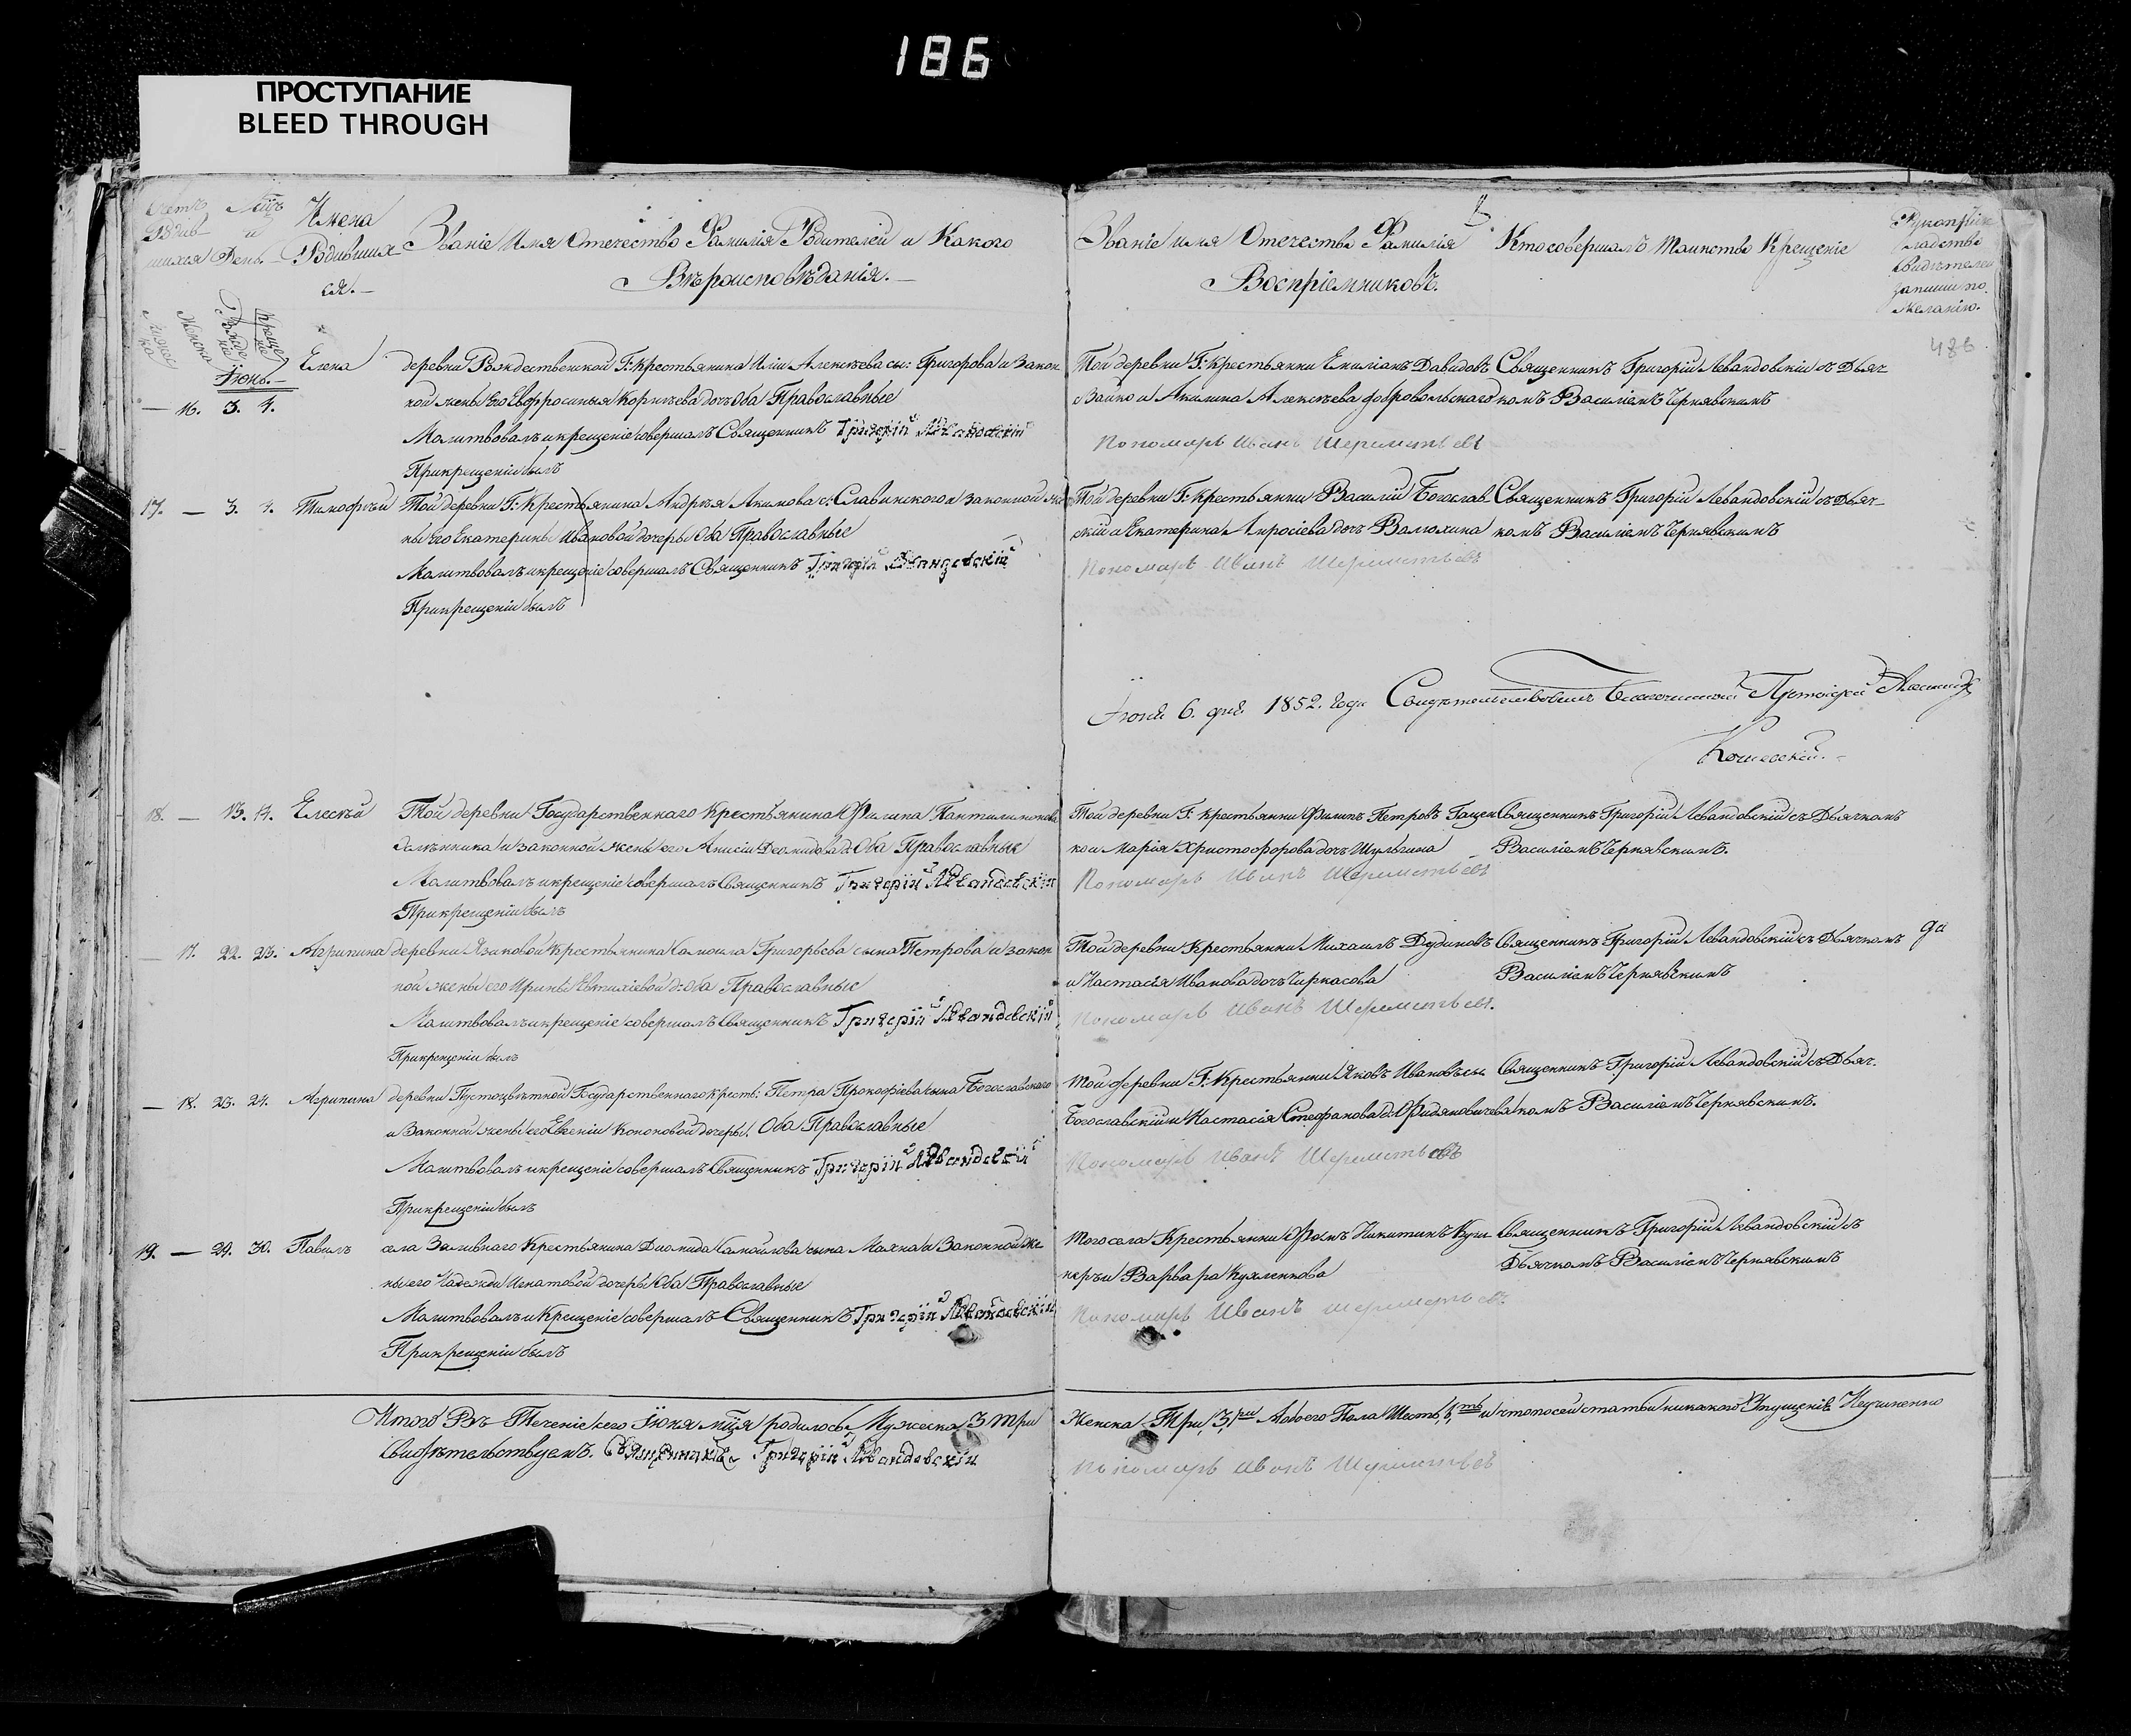 186
ПРОСТУПАНИЕ
BLEED THROUGH
Имена
Родивших
ся.
Званіе Имя Отечество Фамилія Родителей и Какого
Вѣроисповѣданія.
Званіе имя Отечество Фамилія
Воспріемниковъ.
Кто совершалъ таинство Крещеніе
Рукоприк
ладство
свидѣтелей
записи по
желанію.
486
Іюнь.
— 16. 3. 4. Елена
деревни Рождественской Г: Крестьянина Иліи Алексѣева сы: Григорова и Закон
ной жены его Евфросинья Корнѣева дочь Оба Православные
Молитвовалъ и крещеніе совершалъ Священникъ Григорій Левандовскій
При крещеніи былъ
Той деревни Г: Крестьянин Емиліанъ Давидовъ
Зайко и Акилина Алексѣева Добровольскаго
Пономарь Иванъ Шереметьевъ
Священникъ Григорій Левандовскій съ Дьяч
комъ Василіемъ Чернявскимъ
17. — 3. 4. Тимофѣй
Той деревни Г: Крестьянина Андрѣя Акимова с: Славинского и законной же
ны его Екатерины Ивановой дочеры Оба Православные
Молитвовалъ и крещеніе совершалъ Священникъ Григорій Левандовскій
При крещеніи былъ
Той деревни Г: Крестьянин Василій Богослав
скій и Екатерина дочь Валюхина
Пономарь Иванъ Шереметьевъ
Священникъ Григорій Левандовскій съ Дьяч
комъ Василіемъ Чернявскимъ
Іюня 6. дня 1852. года Свидѣтельствовалъ Благочинный Протоіерей
18. — 13. 14. Елесѣй
Той деревни Государственнаго Крестьянина Филипа Пантилимонова
и законной жены его Анисіи Деомидова д: Оба Православные
Молитвовалъ и крещеніе совершалъ Священникъ Григорій Левандовскій
При крещеніи былъ
Той деревни Г: Крестьянин Филипъ Петровъ Гащен
ко и Марія Христофорова дочь Шульгина
Пономарь Иванъ Шереметьевъ
Священникъ Григорій Левандовскій съ Дьячкомъ
Василіемъ Чернявскимъ.
— 17. 22. 23. Агрипина
деревни Языковой Крестьянина Самоила Григорьева сына Петрова и закон
ной жены его Ирины Евтихіевой д: оба Православные
Молитвовалъ и крещеніе совершалъ Священникъ Григорій Левандовскій
При крещеніи былъ
Той деревни Крестьянин Михаилъ Дудиковъ
и Настасія Иванова дочь Чиркасова
Пономарь Иванъ Шереметьевъ.
Священникъ Григорій Левандовскій съ Дьячкомъ
Василіемъ Чернявскимъ
— 18. 23. 24. Агрипина
деревни Пустоцвѣтной Государственнаго крестъ: Петра Прокофіева сына Богославского
и Законной жены его Евгеніи Кононовой дочеры. Оба Православные
Молитвовалъ и крещеніе совершалъ Священникъ Григорій Левандовскій
При крещеніи былъ
Той деревни Г: Крестьянин Яковъ Ивановъ сы
Богославскій и Настасія Стефанова д:
Пономарь Иванъ Шереметьевъ
Священникъ Григорій Левандовскій съ Дьяч
комъ Василіемъ Чернявскимъ.
19. — 29. 30. Павилъ
села Заливнаго Крестьянина Диомида Самойлова сына Махна и Законной же
ны его Надежди Игнатовой дочеры Оба Православные
Молитвовалъ и Крещеніе совершалъ Священникъ Григорій Левандовскій
При крещеніи былъ
Того села Крестьянин Никитинъ
и Варвара
Пономарь Иванъ Шереметьевъ
Священникъ Григорій Левандовскій съ
Дьячкомъ Василіемъ Чернявскимъ
Итого Въ Теченіе сего Іюня мѣся родилось Мужеска 3 три Женска Три, 3, ри Обоего Пола Шесть, 6, ть и что по сей статьи никакого Упущенія Неучиненно
Свидѣтельствуемъ. Священникъ Григорій Левандовскій
Пономарь Иванъ Шереметьевъ